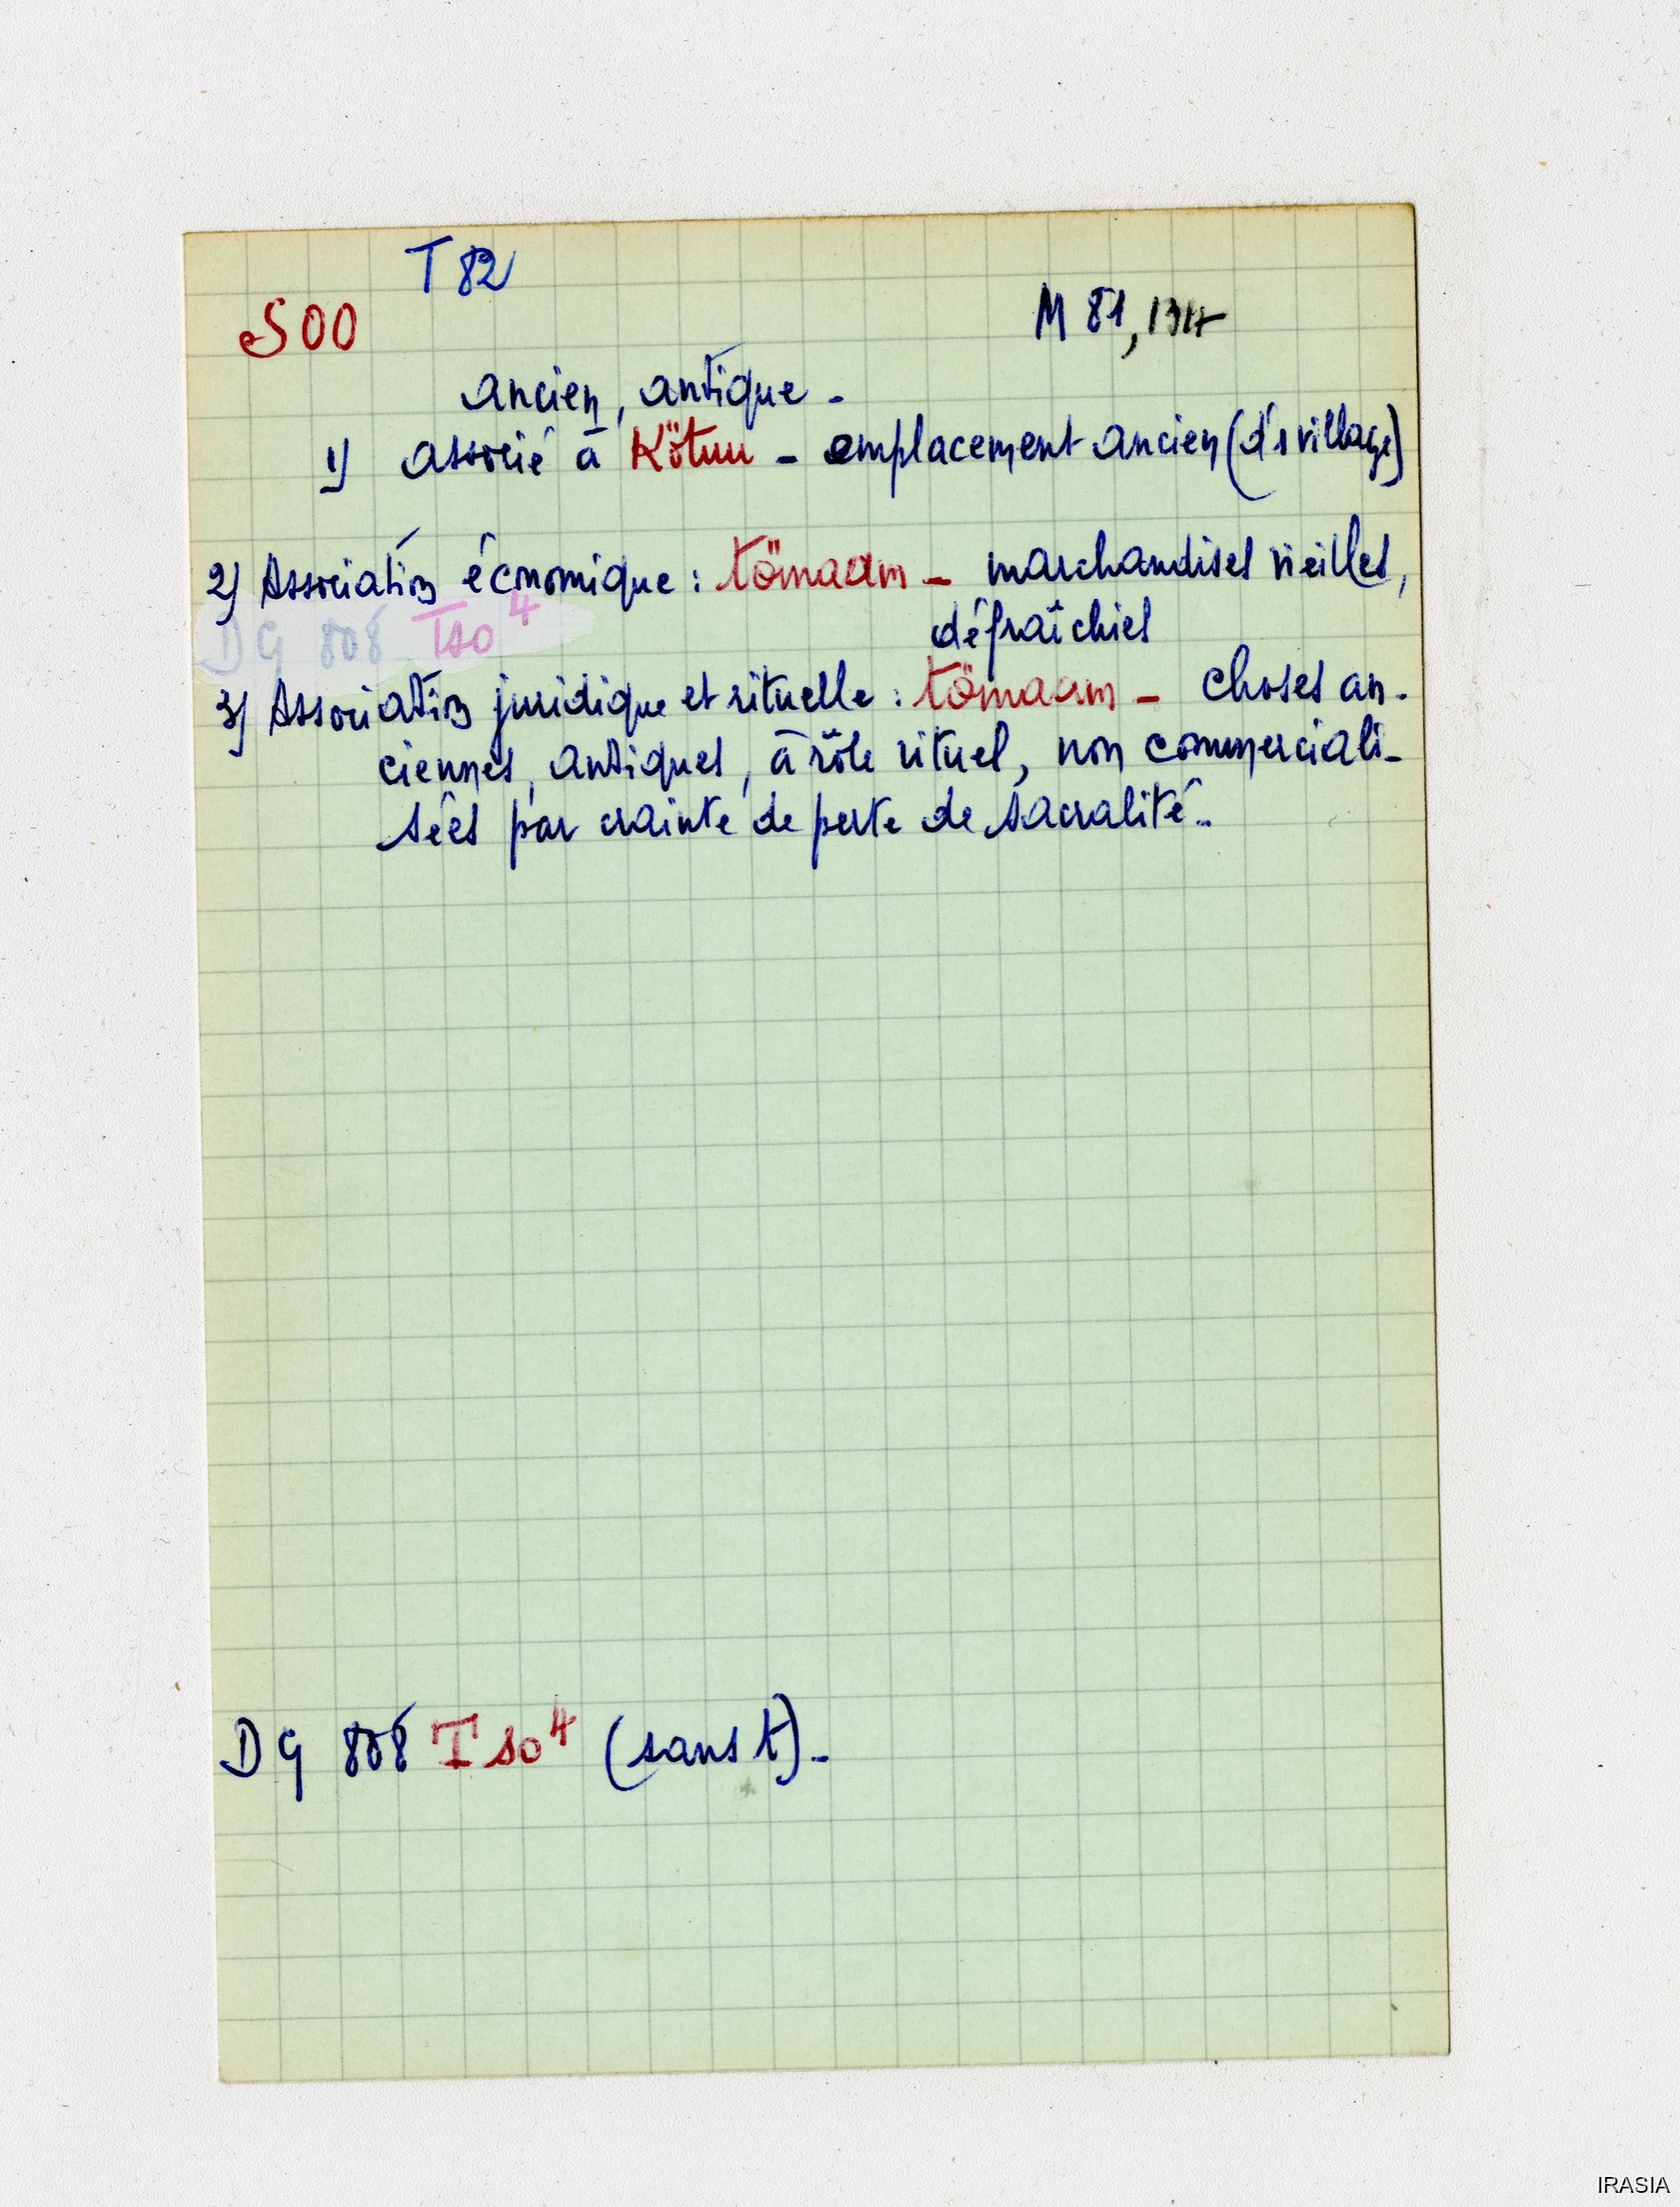 T 82
SOO
M 81,
ancien, antique -
1) associé à Kötuu - emplacement ancien (d'1 village)
2) Association économique : tömaam - marchandises vieilles,
défraîchies
DG 808 Tso⁴
3) Association juridique et rituelle : tömaam - choses an-
ciennes, antiques, à rôle rituel, non commerciali-
sées par crainte de perte de sacralité.
DG 808 Tso⁴ (sans t).
IRASIA